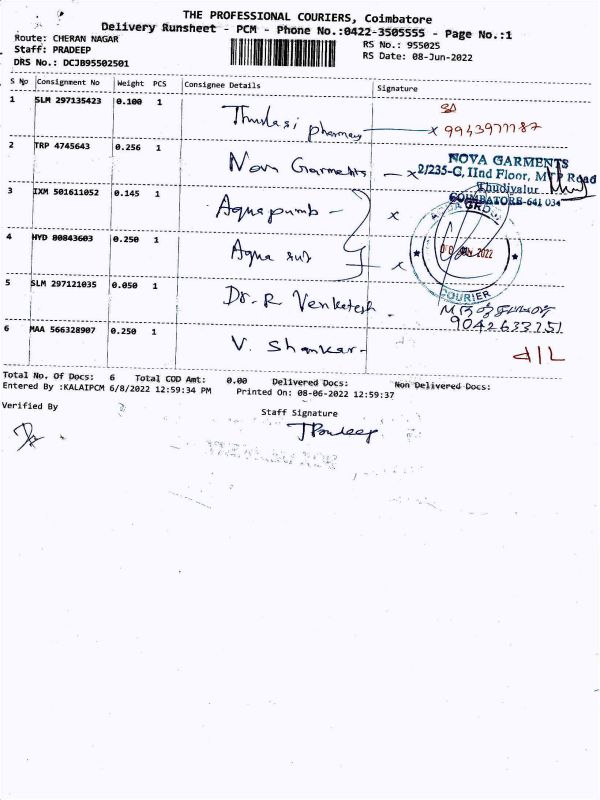 THE PROFESSIONAL COURIERS, Coimbatore
Delivery Runsheet - PCM - Phone No.:0422-3505555 - Page No.:1
Route: CHERAN NAGAR
RS No.: 955025
Staff: PRADEEP
RS Date: 08-Jun-2022
DRS No.: DCJB95502501
S No Consignment No Weight PCS Consignee Details Signature
1 SLM 297135423 0.100 1 Thulasi pharmacy x 9943977187
2 TRP 4745643 0.256 1 Nova Garments - x
NOVA GARMENTS
2/235-C, IInd Floor, MTP Road
Thudiyalur
COIMBATORE-641 034
3 IXM 501611052 0.145 1 Aquapumb - x
4 HYD 80843603 0.250 1 Aqua sub x
2022
COURIER
5 SLM 297121035 0.050 1 Dr. R Venkatesh.
9042633251
6 MAA 566328907 0.250 1 V. Shankar - d/L
Total No. Of Docs: 6 Total COD Amt: 0.00 Delivered Docs: Non Delivered Docs:
Entered By :KALAIPCM 6/8/2022 12:59:34 PM Printed On: 08-06-2022 12:59:37
Verified By
Staff Signature